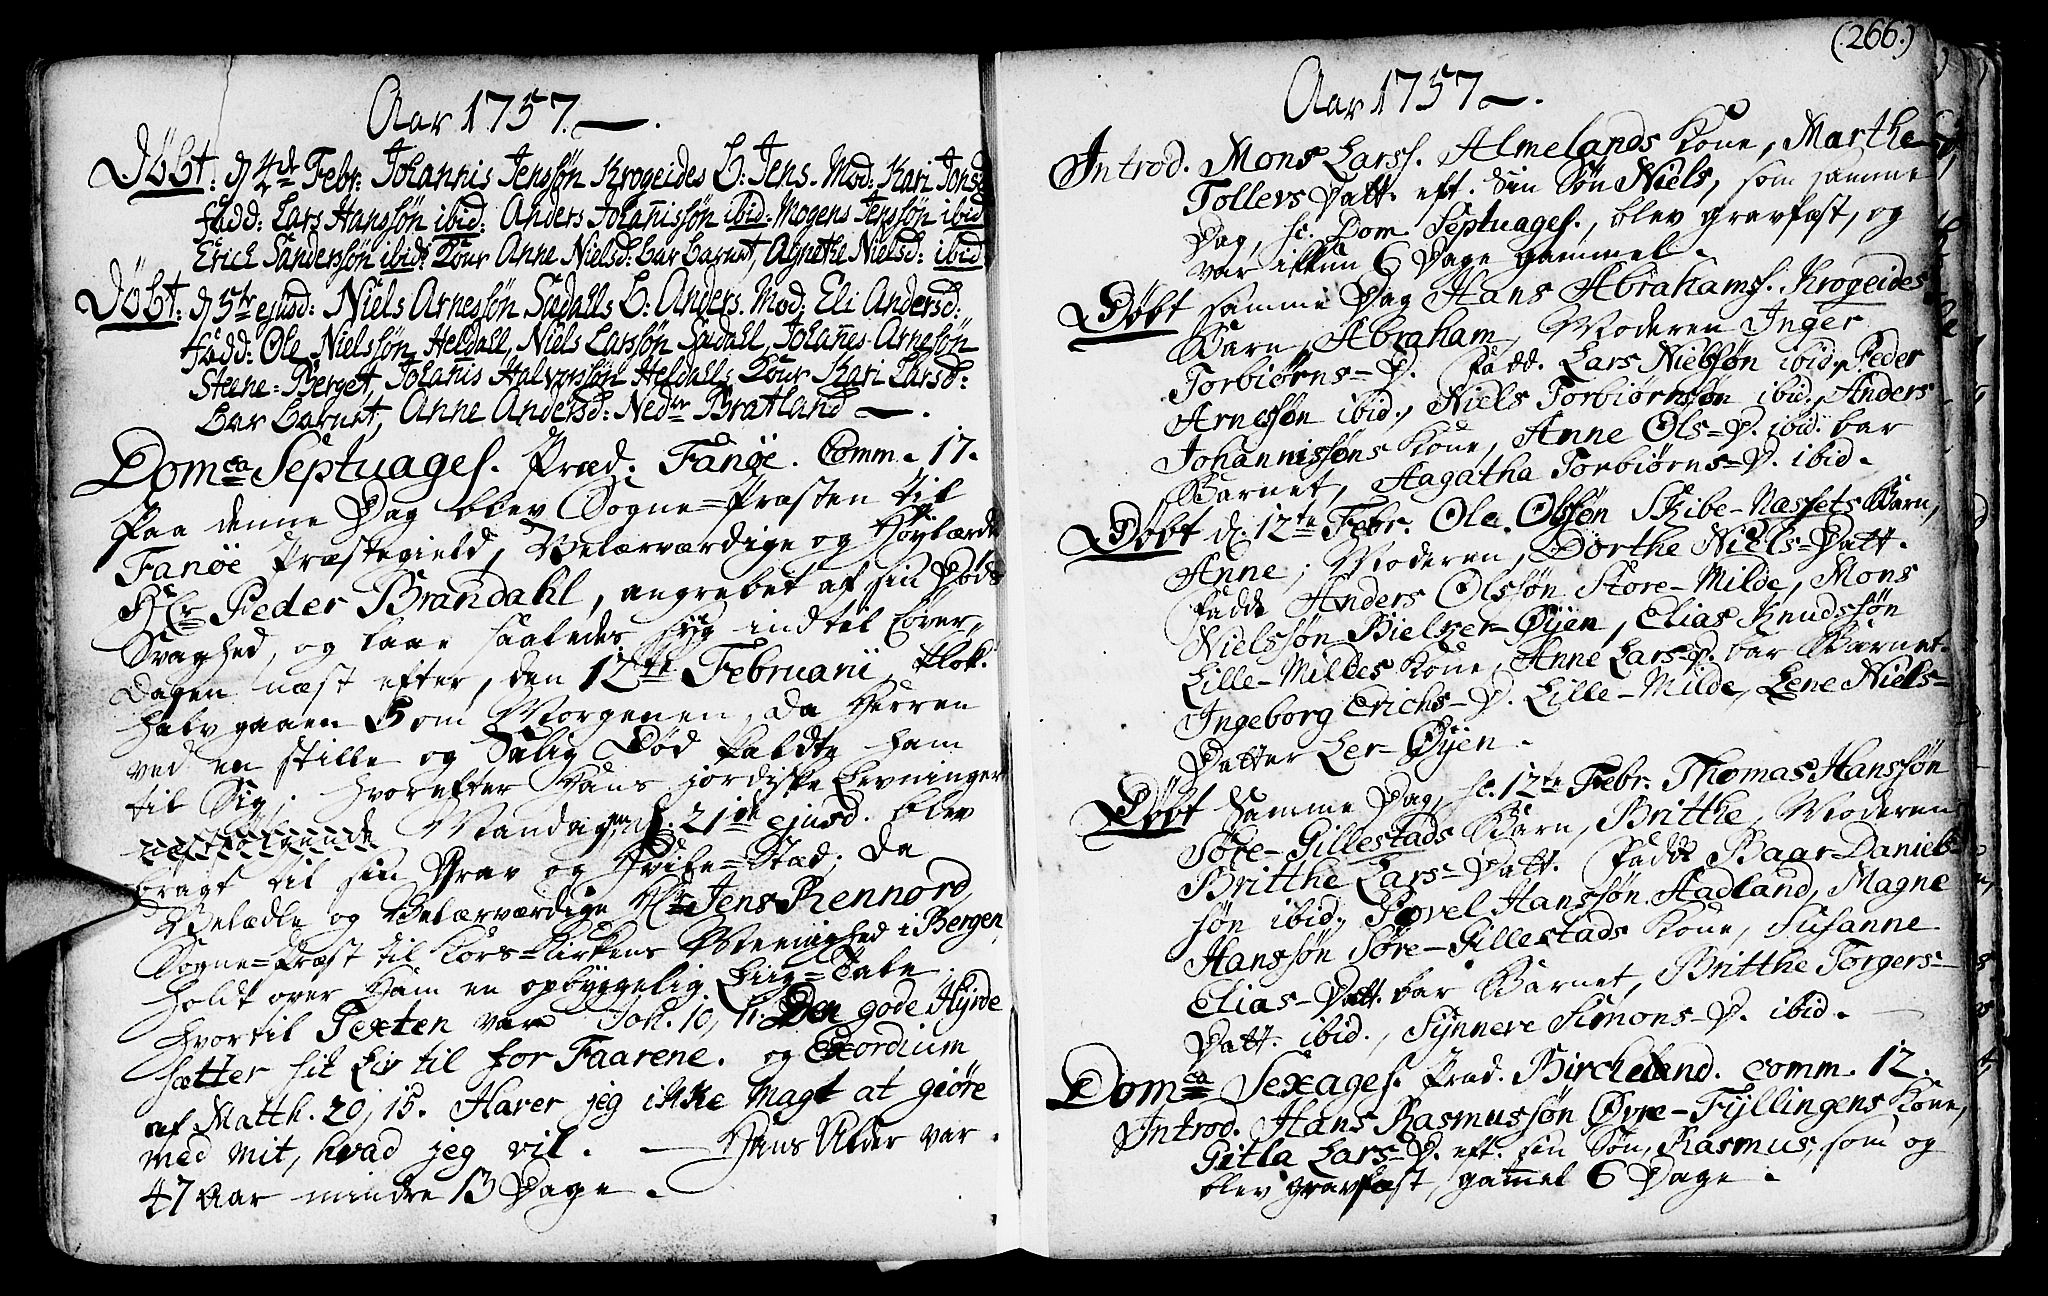 Aar 1757.
Döbt: d 4de Febr: Johannis Jenssön Krogeides B: Jens. Mod: Kari Jonsd
Fadd: Lars Hanssön ibid: Anders Johannissön ibid: Mogens Jenssön ibid
Erich Sanderssön ibid: Konen Anne Nielsd: bar barnet, Agnethe Nielsd: ibid
Döbt: d 5te ejusd: Niels Arnessön Sædalls B: Anders. Mod: Eli Andersd:
Fadd: Ole Nielssön Heldall, Niels Larssön Sædall, Johannes Arnesön
Steene-Berget, Johanis Halvorssön Heldalls Kone Kari Larsd:
bar barnet, Anne Andersd: Nedre Bratland.
Domca Septuages. Præd. Fanöe. Comm. 17.
Paa denne Dag blev Sogne-Præsten til
Fanöe Præstegield, Velærværdige og Höylærde
Hr Peder Brandahl, angrebet af sin Döds
Svaghed, og laae saaledes syg indtil Löver-
dagen næst efter, den 12te Februarii, Klok.
halv gaaen 5 om Morgenen, da Herren
ved en stille og Salig Död kaldte ham
til Sig; hvorefter Hans jordiske Levninger
næstfölgende Mandag d. 21de ejusd. blev
bragt til sin Grav og Hvile-Stæd; da
Velædle og Velærværdige Hr Jens Rennord,
Sogne-Præst til Kors-Kirkens Meenighed i Bergen,
holdt over Ham en opbyggelig Liig-Tale,
hvortil Texten var Joh. 10, 11. Den gode Hyrde
sætter sit Liv til for Faarene. og Exordium
af Matth. 20, 15. Haver jeg ikke magt at giöre
med mit, hvad jeg vil. — Hans Alder var
47 Aar mindre 13 Dage.
(266.)
Aar 1757.
Introd. Mons Larss. Almelands Kone, Marthe
Tollevs Datt. eft. Sin Sön Niels, som samme
Dag, sc. Dom. Septuages., blev gravfæst, og
var ikkun 6 Dage gammel.
Döbt samme Dag Hans Abrahams. Krogeides
Barn, Abraham, Moderen Inger
Torbiörns-D. Fadd. Lars Nielssön ibid., Peder
Arnessön ibid., Niels Torbiörnssön ibid., Anders
Johannissöns Kone, Anne Ols-D. ibid. bar
Barnet, Aagatha Torbiörns-D. ibid.
Döbt d. 12te Febr. Ole Olssön Skibe-Næssets Barn,
Anne; Moderen, Dorthe Niels-Datt.
Fadd. Anders Olssön Store-Milde, Mons
Nielssön Bielker-Öyen, Elias Knudssön
Lille-Mildes Kone, Anne Lars-D. bar Barnet.
Ingeborg Erichs-D. Lille-Milde, Lene Niels-
Datter Ler-Öyen.
Döbt Samme Dag, sc. 12te Febr. Thomas Hanssön
Söre-Gillestads Barn, Britthe, Moderen
Britthe Lars-Datt. Fadd. Baar Daniels-
sön ibid., Povel Hanssön Aadland, Magne
Hanssön Söre-Gillestads Kone, Susanne
Elias-Datt. bar Barnet, Britthe Torgers-
Datt. ibid., Synneve Simons-D. ibid.
Domca Sexages. Præd. Bircheland. comm. 12.
Introd. Hans Rasmussön Övre-Fyllingens Kone,
Gitla Lars-D. eft. sin Sön, Rasmus, som og
blev gravfæst, gammel 6 Dage.